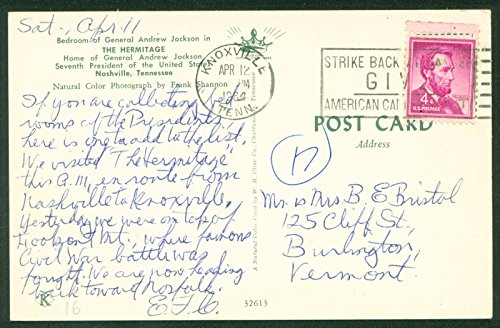 Sat., Apr. 11
Bedroom of General Andrew Jackson in
THE HERMITAGE
Home of General Andrew Jackson
Seventh President of the United States
Nashville, Tennessee
Natural Color Photograph by Frank Shannon
If you are collecting bed
rooms of the Presidents
here is one to add to the list.
We visited "The Hermitage"
this A.M, en route from
Nashville to Knoxville.
Yesterday we were on top of
Lookout Mt., where famous
Civil War battle was
fought. We are now heading
back toward Norfolk.
E.F.C.
K
16
A Natural Color Card by W. M. Cline Co., Chattanooga, Tennessee
32613
KNOXVILLE
APR 12
PM
1964
TENN.
STRIKE BACK
GIV
AMERICAN CAN
4¢
U.S. POSTAGE
POST CARD
Address
17
Mr. & Mrs B. E Bristol
125 Cliff St,
Burlington,
Vermont.